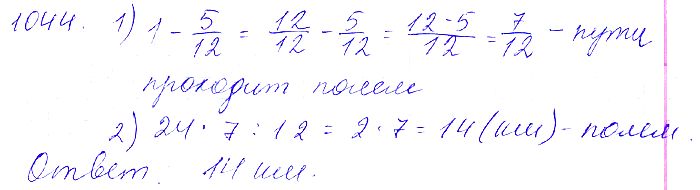 1044. 1) 1 - 5/12 = 12/12 - 5/12 = 12-5/12 = 7/12 - пути
проходит полем
2) 24 · 7 : 12 = 2 · 7 = 14 (км) - полем.
Ответ: 14 км.